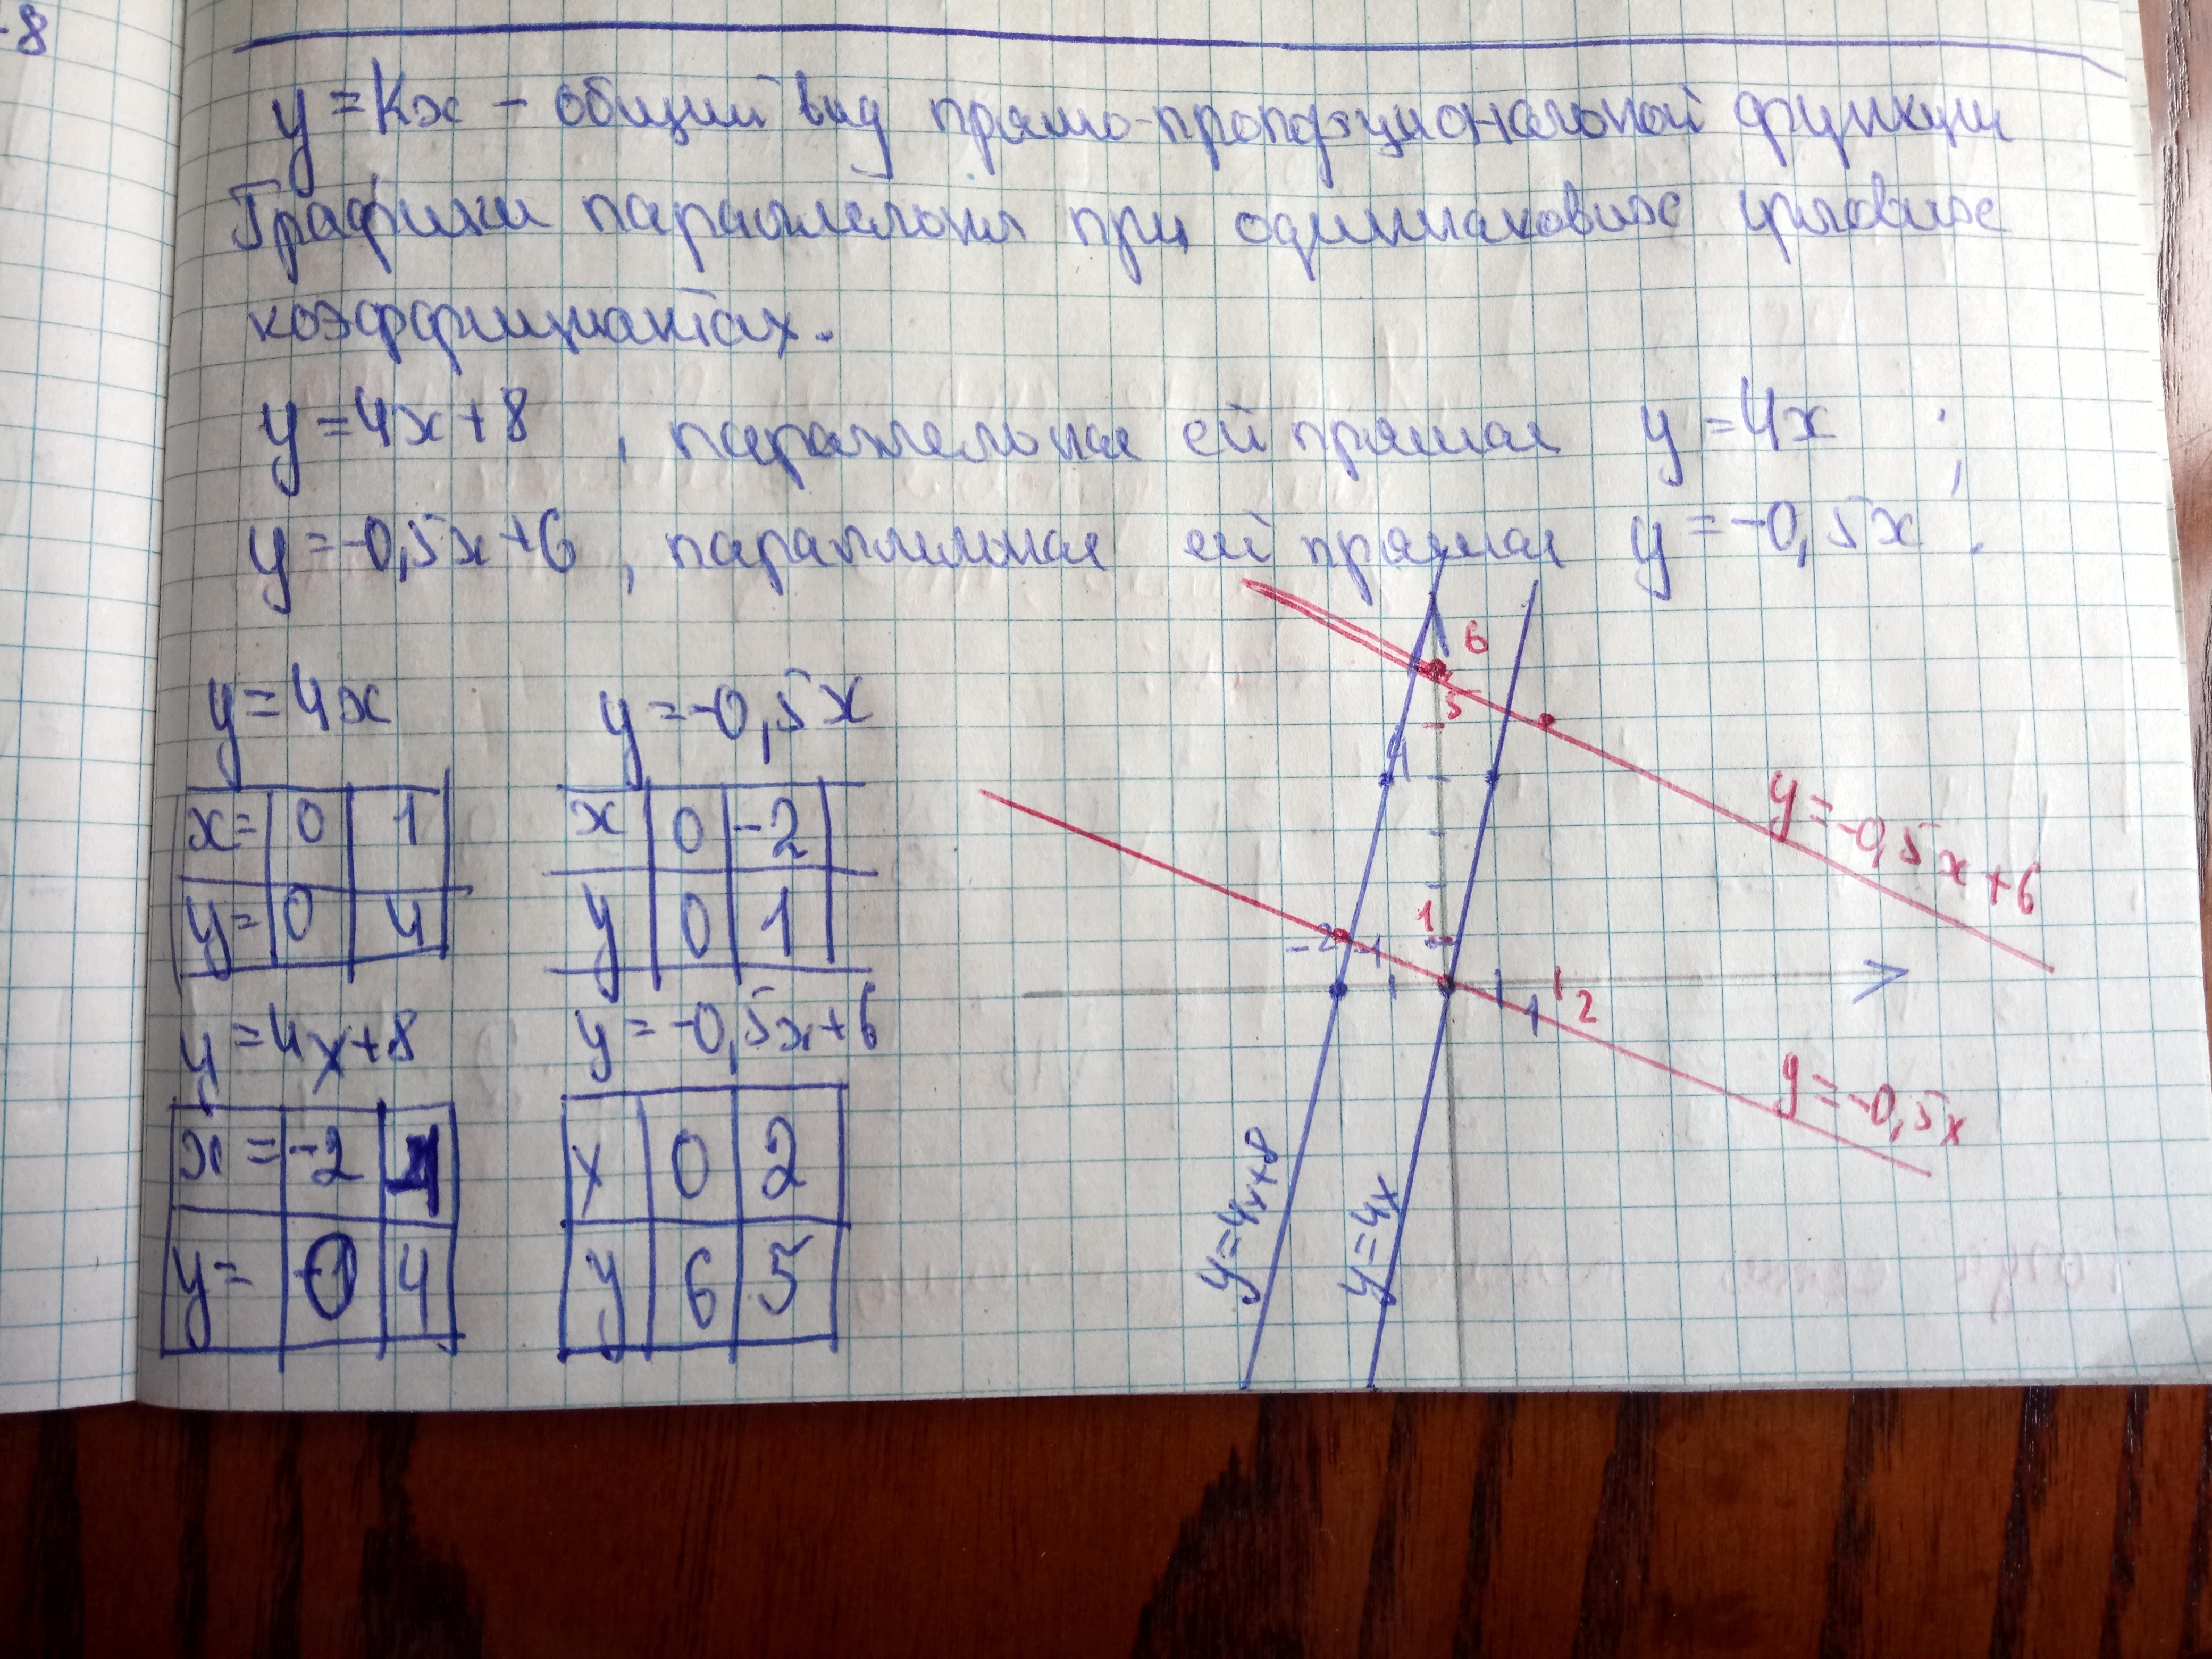 -8
y = kx - общий вид прямо-пропорциональной функции
Графики параллельны при одинаковых угловых
коэффициентах.
y = 4x + 8 , параллельная ей прямая y = 4x ;
y = -0,5x + 6 , параллельная ей прямая y = -0,5x .
y = 4x
x= 0 1
y= 0 4
y = -0,5x
x 0 -2
y 0 1
y = 4x + 8
x = -2
y = 4
y = -0,5x + 6
x 0 2
y 6 5
6
5
4
1
-2 -1
1 2
y = -0,5x + 6
y = -0,5x
y = 4x + 8
y = 4x